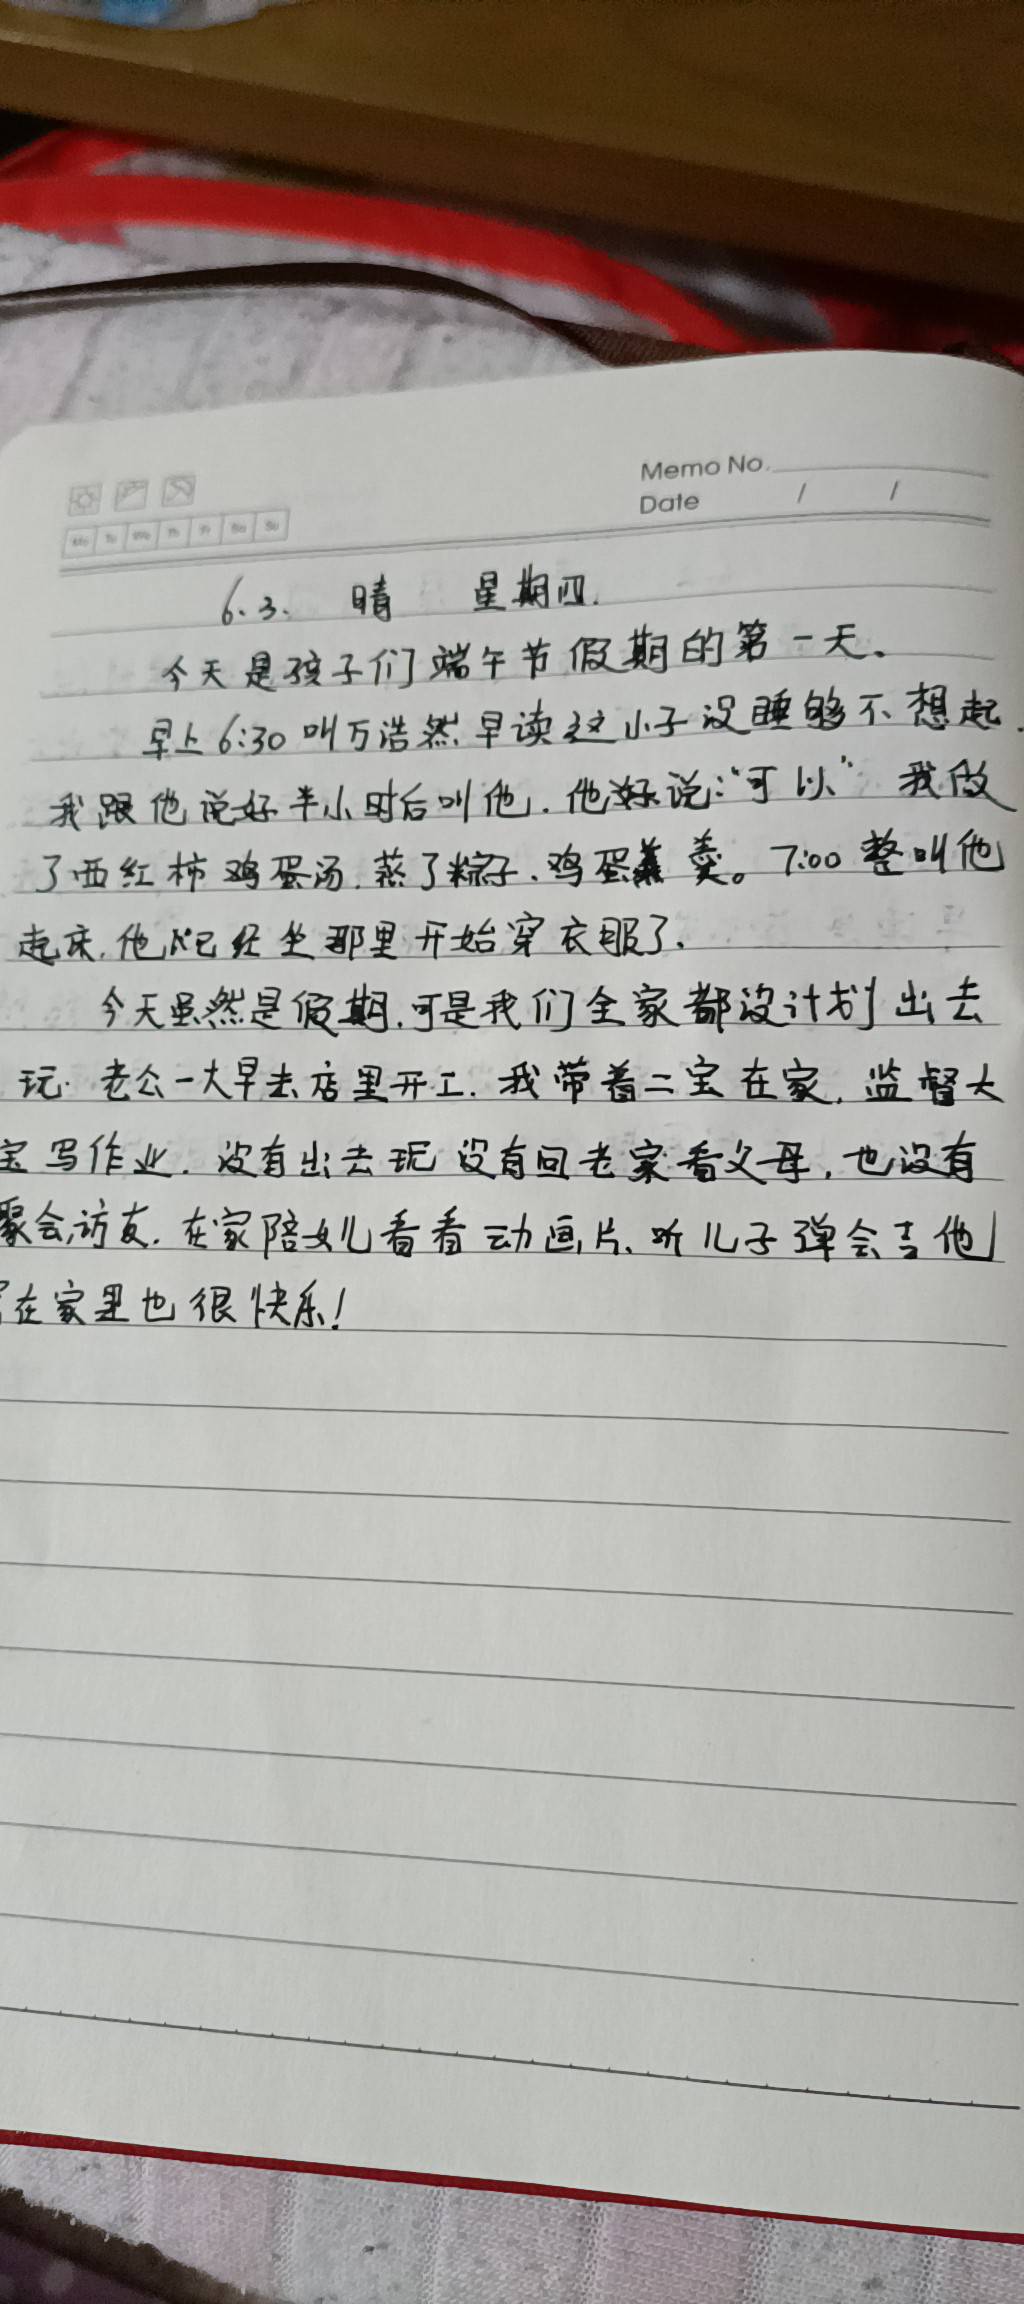 Memo No.
Date / /
Mo Tu We Th Fr Sa Su
6.3. 晴 星期四.
今天是孩子们端午节假期的第一天、
早上6:30叫万浩然早读这小子没睡够不想起.
我跟他说好半小时后叫他.他说:“可以” 我做
了西红柿鸡蛋汤.蒸了粽子.鸡蛋羹。7:00整叫他
起床.他已经坐那里开始穿衣服了.
今天虽然是假期.可是我们全家都没计划出去
玩. 老公一大早去店里开工.我带着二宝在家,监督大
宝写作业.没有出去玩 没有回老家看父母,也没有
聚会,访友.在家陪女儿看看动画片、听儿子弹会吉他
在家里也很快乐!